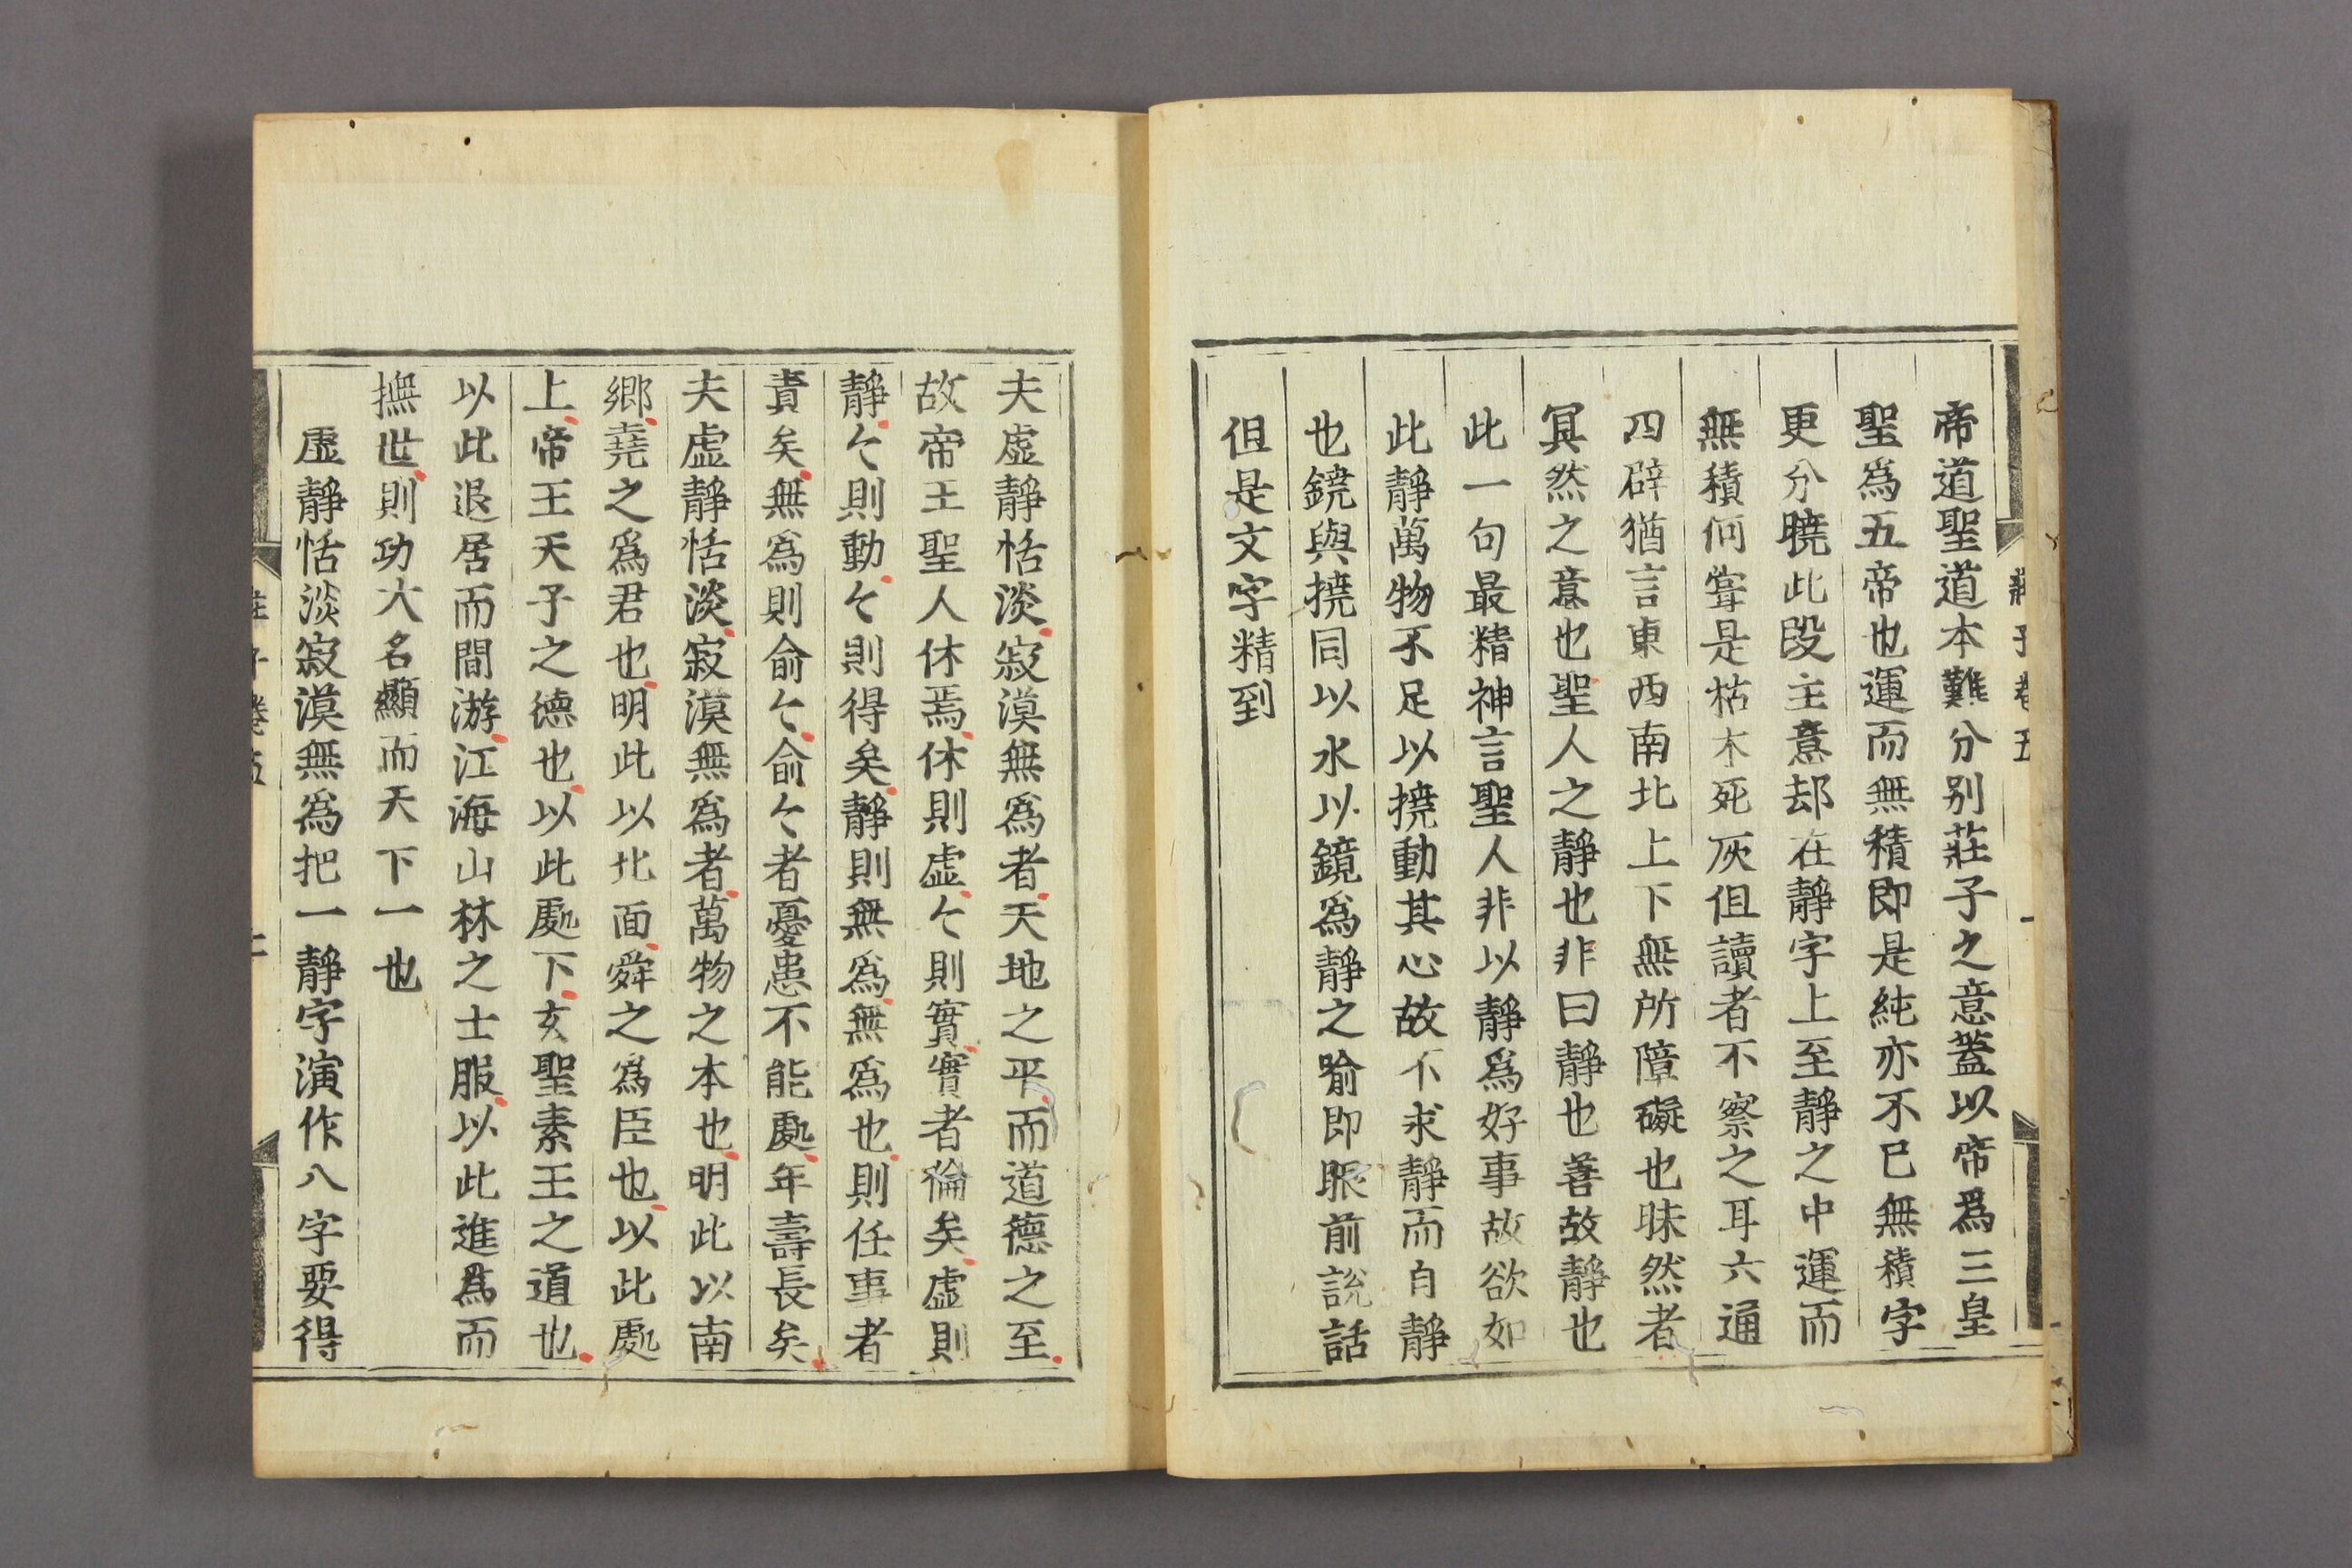 莊子卷五 一
帝道聖道本難分别莊子之意蓋以帝爲三皇
聖爲五帝也運而無積即是純亦不已無積字
更分曉此段主意却在靜字上至靜之中運而
無積何甞是枯木死灰但讀者不察之耳六通
四辟猶言東西南北上下無所障礙也昧然者
冥然之意也聖人之靜也非曰靜也善故靜也
此一句最精神言聖人非以靜爲好事故欲如
此靜萬物不足以撓動其心故不求靜而自靜
也鐃與撓同以水以鏡爲靜之喻即眼前説話
但是文字精到
夫虛靜恬淡寂漠無爲者天地之平而道德之至
故帝王聖人休焉休則虛〻則實實者倫矣虛則
靜〻則動〻則得矣靜則無爲無爲也則任事者
責矣無爲則俞〻俞〻者憂患不能處年壽長矣
夫虛靜恬淡寂漠無爲者萬物之本也明此以南
鄉堯之爲君也明此以北面舜之爲臣也以此處
上帝王天子之德也以此處下玄聖素王之道也
以此退居而閒游江海山林之士服以此進爲而
撫世則功大名顯而天下一也
虛靜恬淡寂漠無爲把一靜字演作八字要得